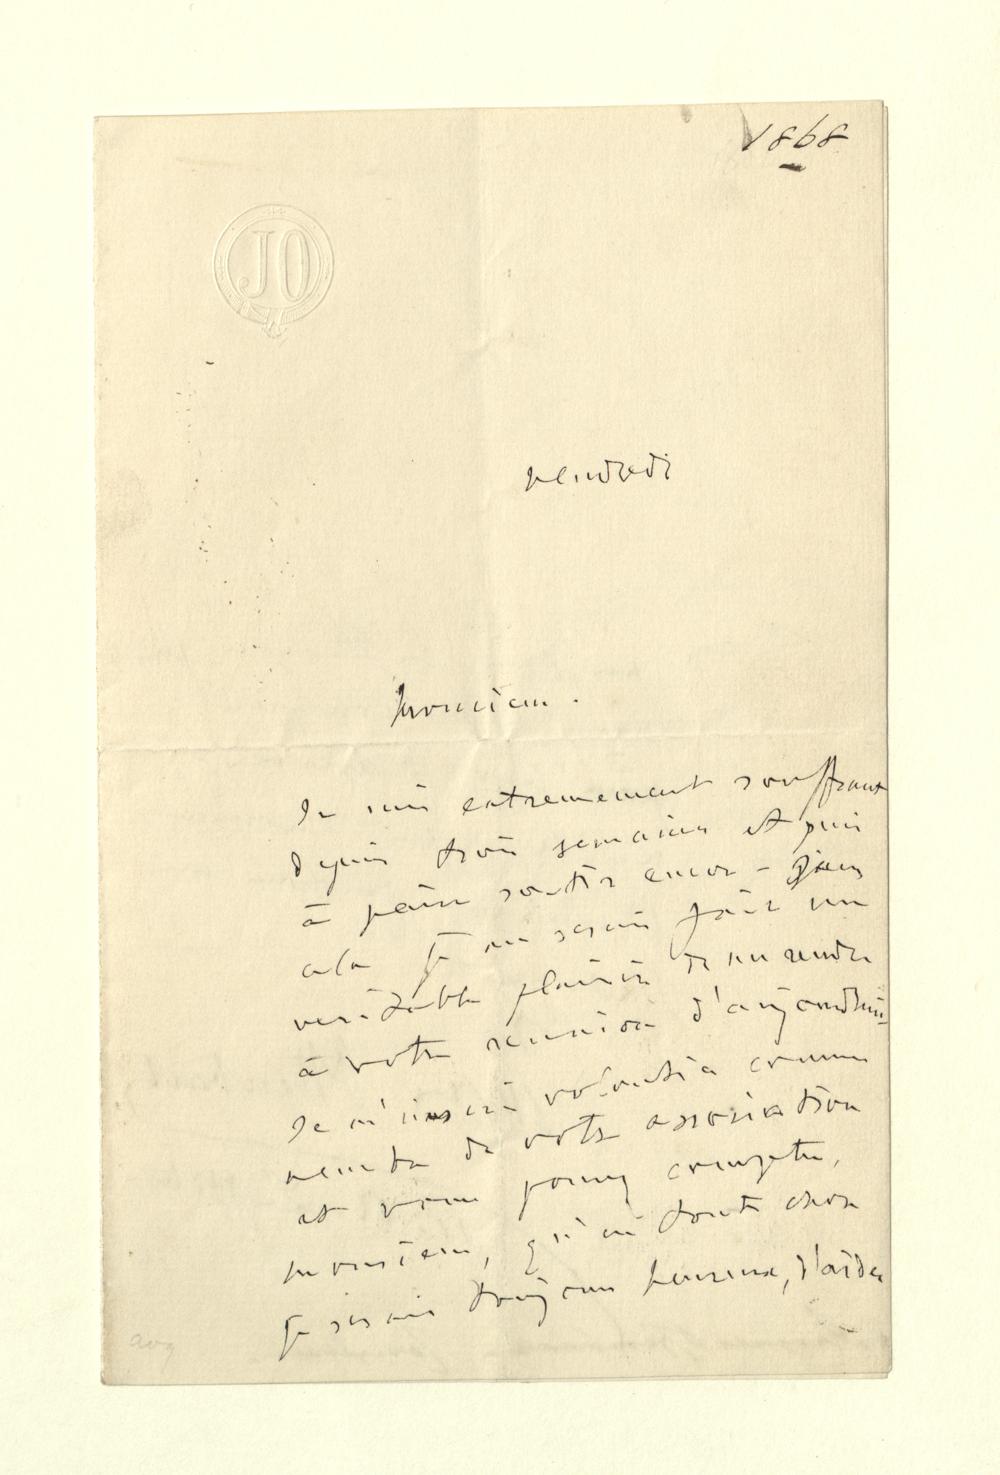 1868
JO
vendredi
Monsieur.
Je suis extremement souffrant
depuis trois semaines et puis
à peine sortir encor - sans
cela je me serais fait un
veritable plaisir de me rendre
à votre reunion d'aujourdhui
Je m'inscris volontier comme
membre de votre association
et vous pouvez compter,
Monsieur, qu'en toute chose
je serais toujours heureux, d'aider